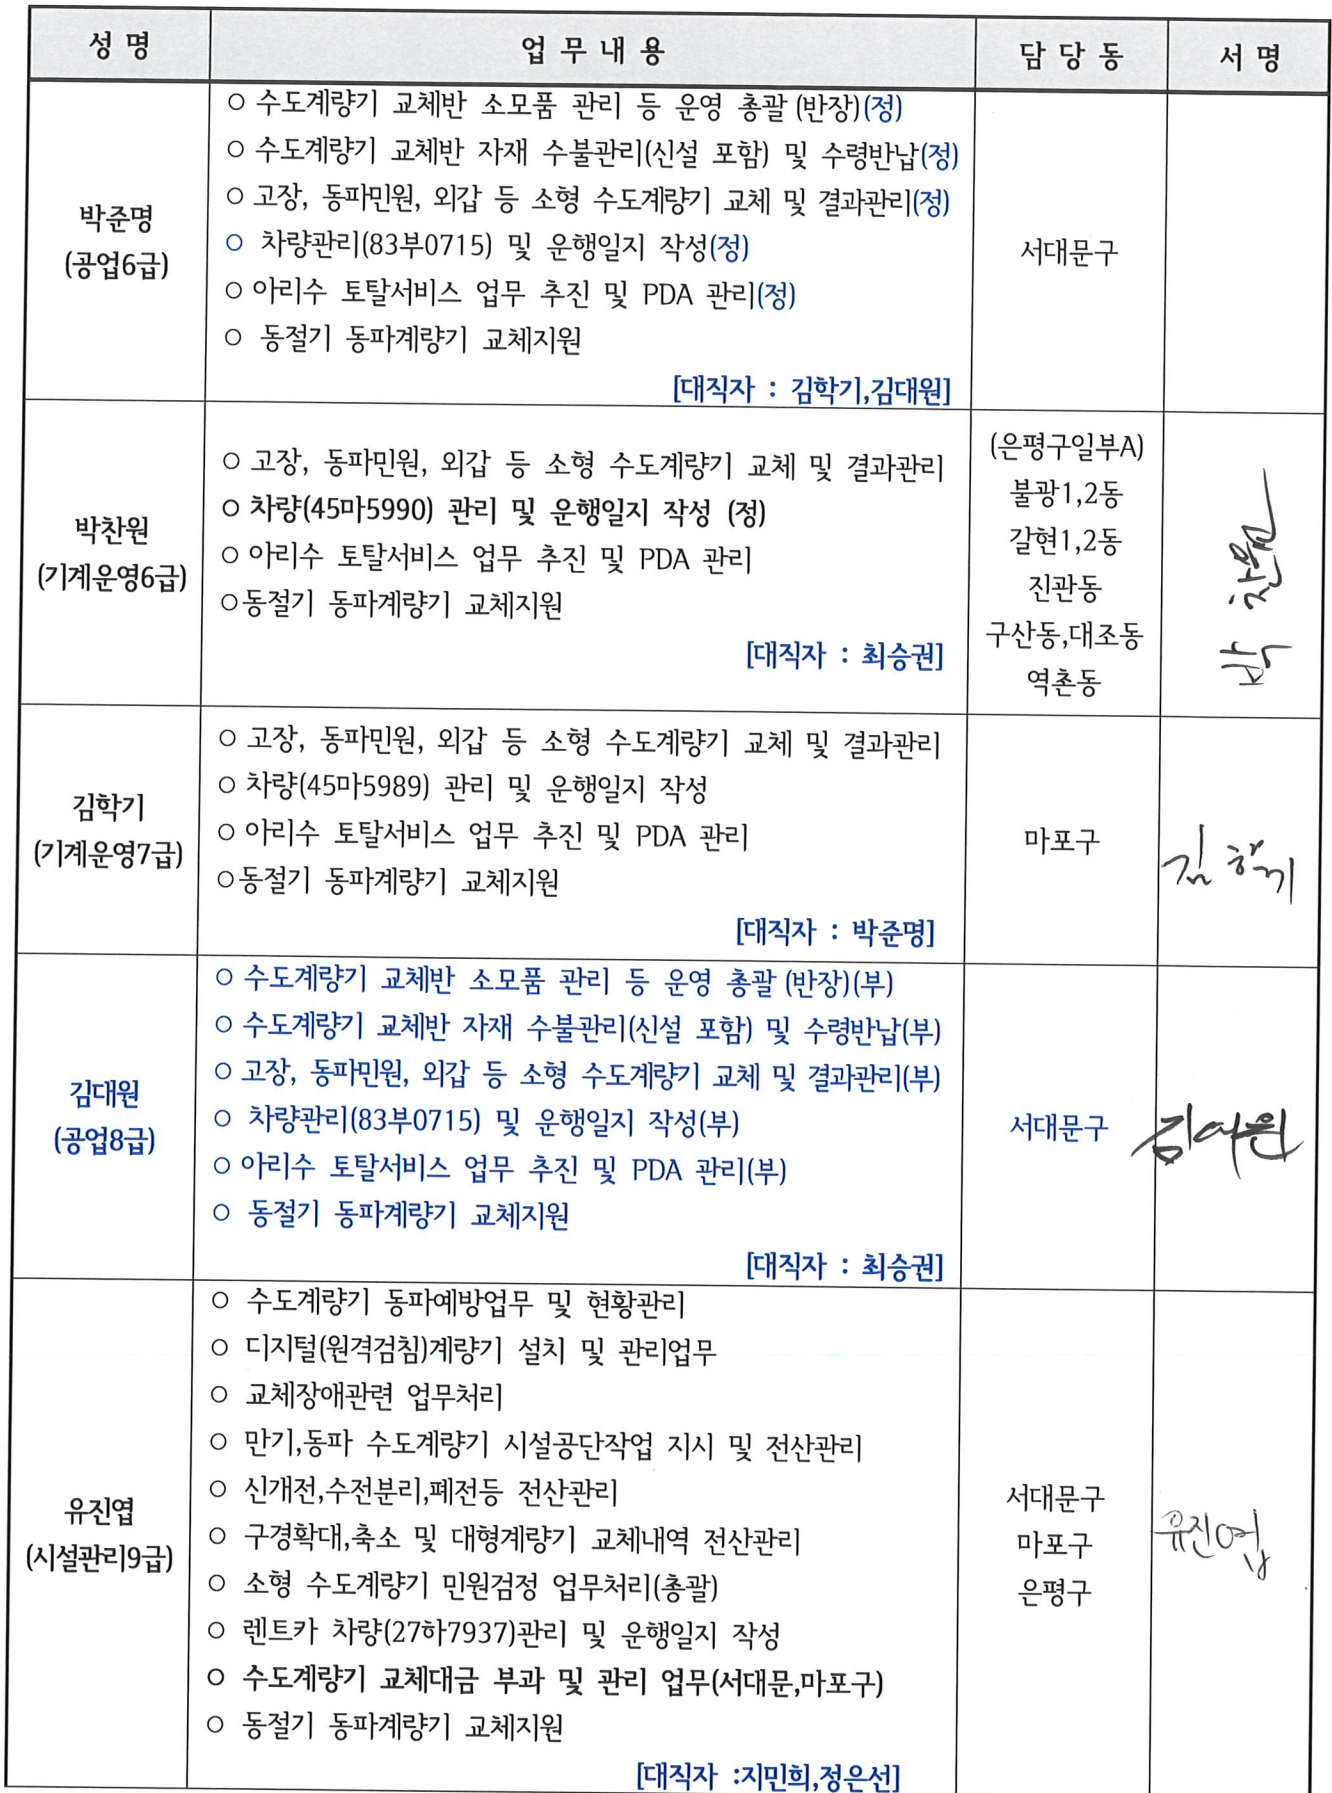 성 명 업 무 내 용 담 당 동 서 명
박준명
(공업6급)
○ 수도계량기 교체반 소모품 관리 등 운영 총괄 (반장)(정)
○ 수도계량기 교체반 자재 수불관리(신설 포함) 및 수령반납(정)
○ 고장, 동파민원, 외갑 등 소형 수도계량기 교체 및 결과관리(정)
○ 차량관리(83부0715) 및 운행일지 작성(정)
○ 아리수 토탈서비스 업무 추진 및 PDA 관리(정)
○ 동절기 동파계량기 교체지원
[대직자 : 김학기,김대원]
서대문구
박찬원
(기계운영6급)
○ 고장, 동파민원, 외갑 등 소형 수도계량기 교체 및 결과관리
○ 차량(45마5990) 관리 및 운행일지 작성 (정)
○ 아리수 토탈서비스 업무 추진 및 PDA 관리
○동절기 동파계량기 교체지원
[대직자 : 최승권]
(은평구일부A)
불광1,2동
갈현1,2동
진관동
구산동,대조동
역촌동
박찬원
김학기
(기계운영7급)
○ 고장, 동파민원, 외갑 등 소형 수도계량기 교체 및 결과관리
○ 차량(45마5989) 관리 및 운행일지 작성
○ 아리수 토탈서비스 업무 추진 및 PDA 관리
○동절기 동파계량기 교체지원
[대직자 : 박준명]
마포구
김학기
김대원
(공업8급)
○ 수도계량기 교체반 소모품 관리 등 운영 총괄 (반장)(부)
○ 수도계량기 교체반 자재 수불관리(신설 포함) 및 수령반납(부)
○ 고장, 동파민원, 외갑 등 소형 수도계량기 교체 및 결과관리(부)
○ 차량관리(83부0715) 및 운행일지 작성(부)
○ 아리수 토탈서비스 업무 추진 및 PDA 관리(부)
○ 동절기 동파계량기 교체지원
[대직자 : 최승권]
서대문구
김대원
유진엽
(시설관리9급)
○ 수도계량기 동파예방업무 및 현황관리
○ 디지털(원격검침)계량기 설치 및 관리업무
○ 교체장애관련 업무처리
○ 만기,동파 수도계량기 시설공단작업 지시 및 전산관리
○ 신개전,수전분리,폐전등 전산관리
○ 구경확대,축소 및 대형계량기 교체내역 전산관리
○ 소형 수도계량기 민원검정 업무처리(총괄)
○ 렌트카 차량(27하7937)관리 및 운행일지 작성
○ 수도계량기 교체대금 부과 및 관리 업무(서대문,마포구)
○ 동절기 동파계량기 교체지원
[대직자 :지민희,정은선]
서대문구
마포구
은평구
유진엽